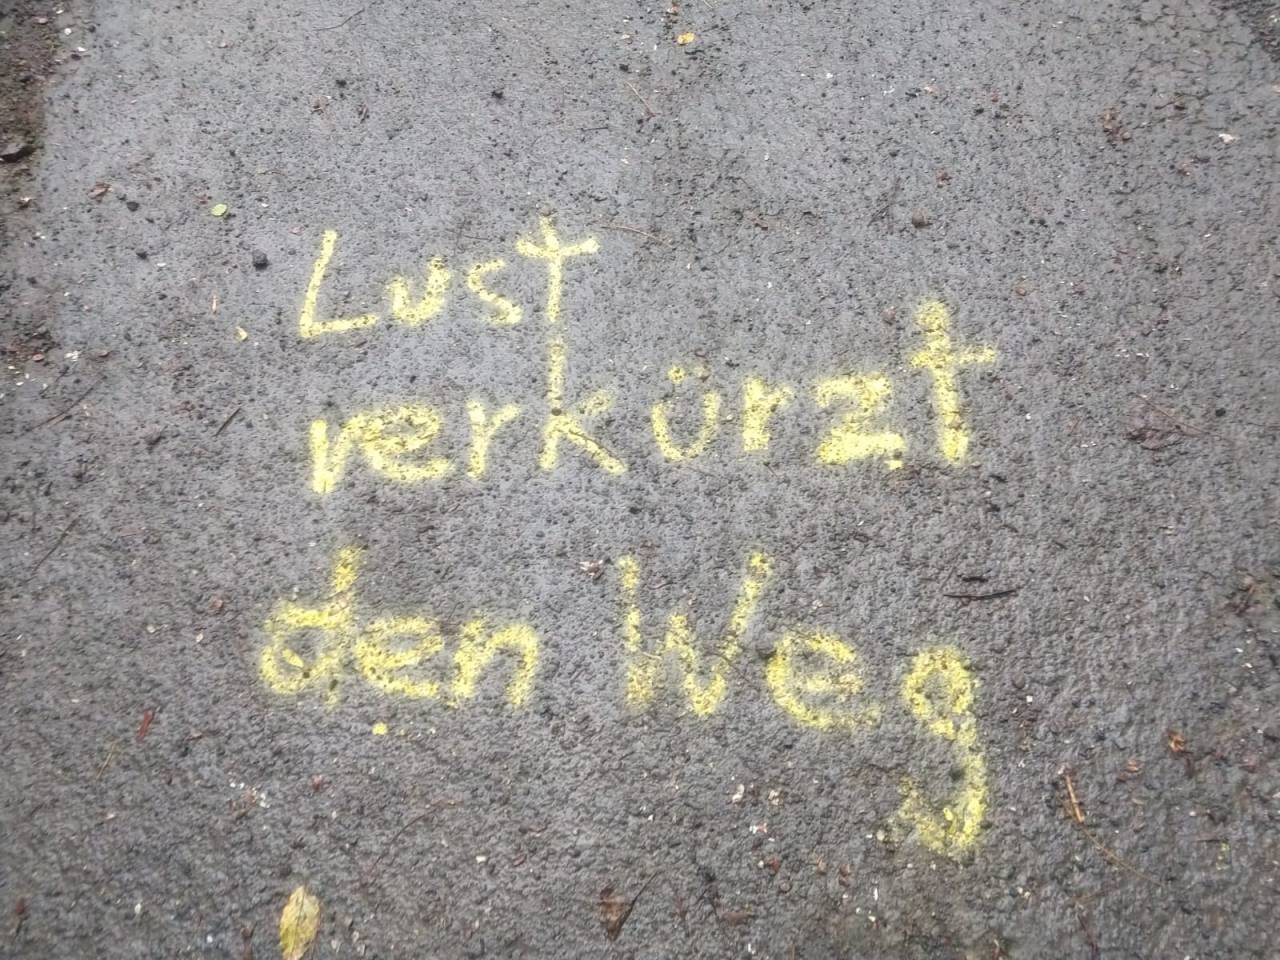 Lust
verkürzt
den Weg